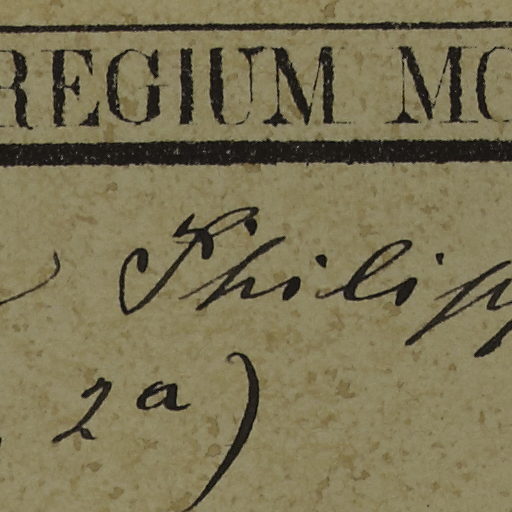 REGIUM MO
Philipp
2a)